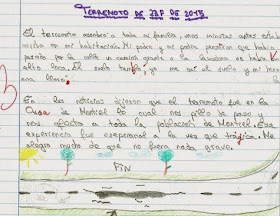 TERREMOTO DE 23F DE 2015
El terremoto asombró a toda mi familia, unos minutos antes estaba
arriba en mi habitación. Mi padre y mi madre pensaron que había
pasado por la calle un camión grande o la lavadora se había
El suelo temblo, yo me caí al suelo y mi
una
En las noticias dijeron que el terremoto fue en la
de Montiel lo cual nos pilló de paso y
afecto a toda la población de Montiel. Esa
experiencia fue excepcional a la vez que trágica. Me
alegro mucho de que no fuera nada grave.
FIN